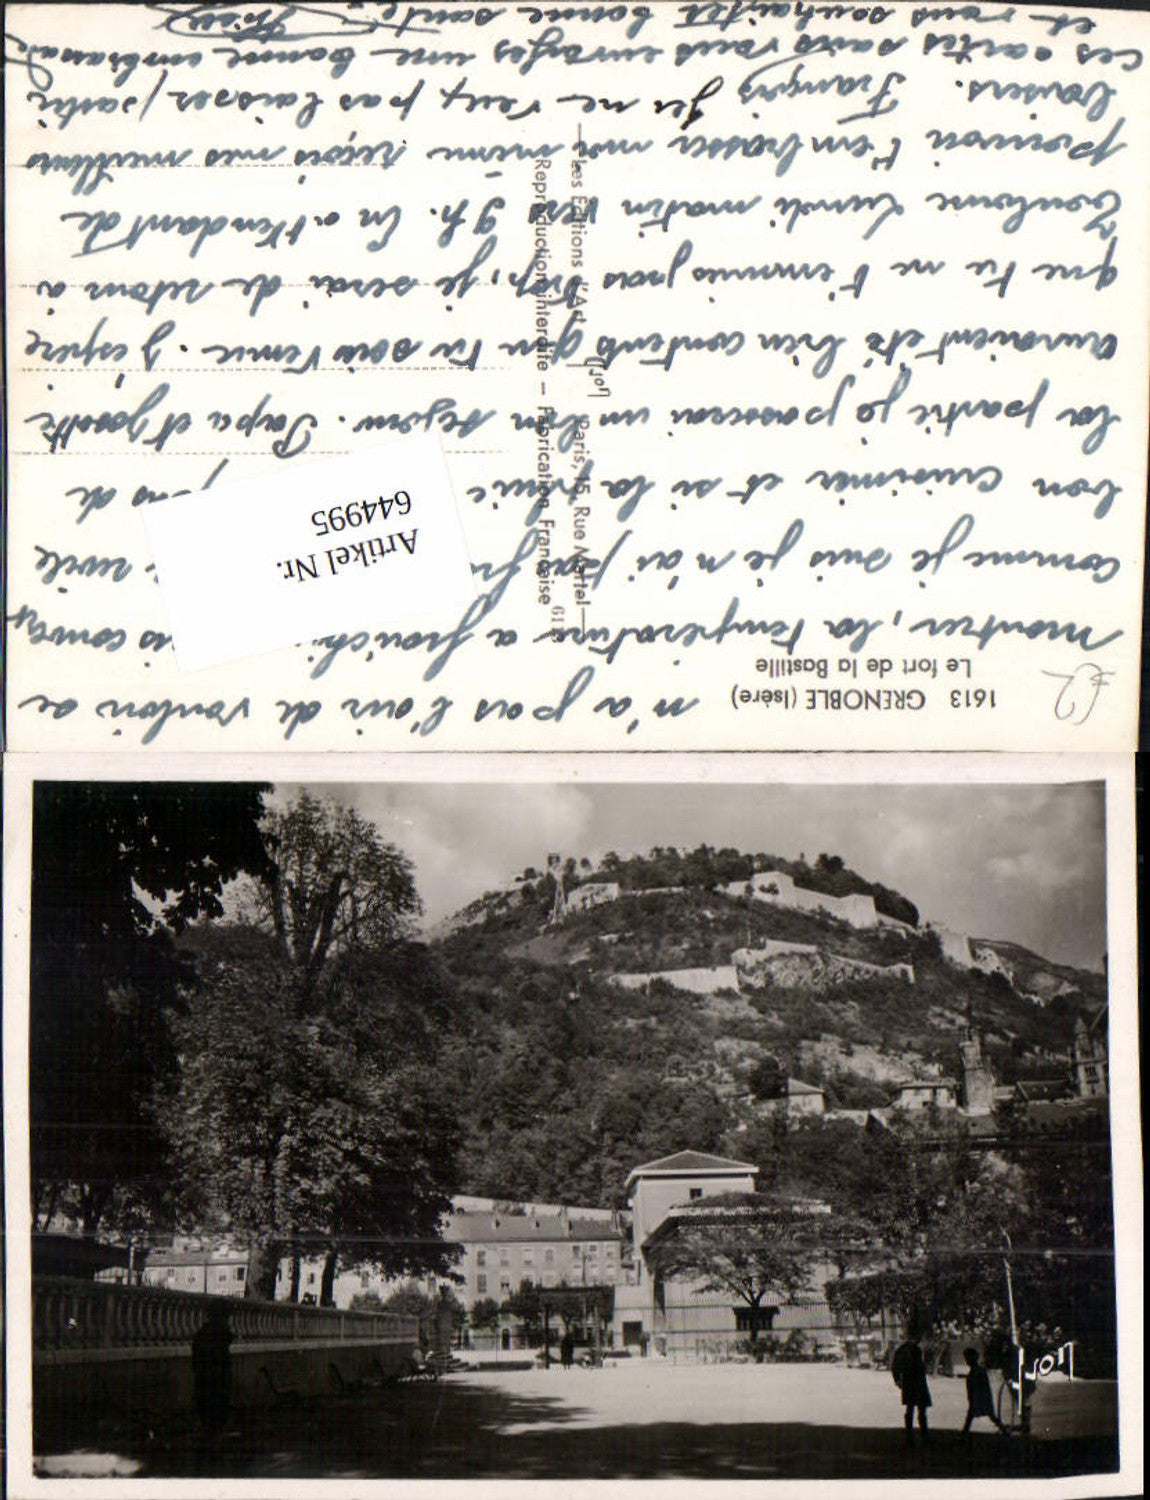 1613 GRENOBLE (Isère)
Le fort de la Bastille
n'a pas l'air de vouloir se
montrer, la température a
comme je suis je n'ai pas
bon cuisinier et si la de
la partie je passerai un bon séjour. Papa et Josette
auraient été bien contents que tu sois venu. J'espère
que tu ne t'ennuies pas trop, je serai de retour à
Toulouse Lundi matin vers 9 h. En attendant de
pouvoir t'embrasser moi même reçois mes meilleurs
baisers. François Je ne veux pas laisser partir
ces cartes sans vous envoyer une bonne embrassade
et vous souhaiter bonne santé.
Les Editions d'Art Yvon Paris, 15, Rue Martel
Reproduction interdite — Fabrication Française
Artikel Nr.
644995
Yvon